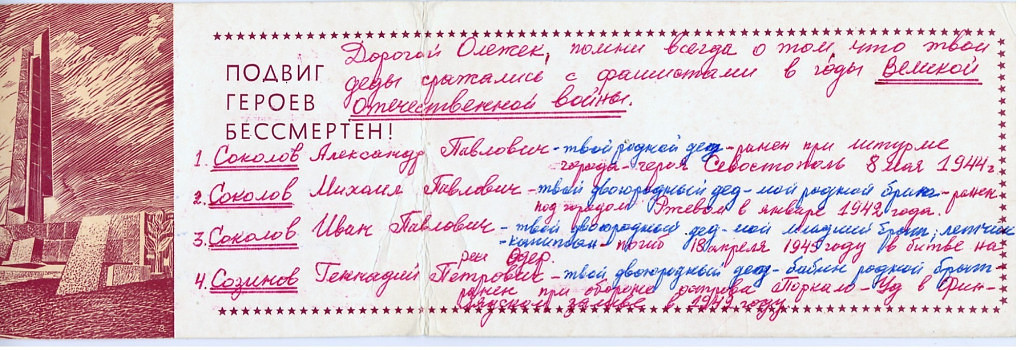 ПОДВИГ
ГЕРОЕВ
БЕССМЕРТЕН!
Дорогой Олежек, помни всегда о том, что твои
деды сражались с фашистами в годы Великой
Отечественной войны.
1. Соколов Александр Павлович - твой родной дед - ранен при штурме
города-героя Севостополь 8 мая 1944 г
2. Соколов Михаил Павлович - твой двоюродный дед - мой родной брат - ранен
под городом Ржевом в январе 1942 года.
3. Соколов Иван Павлович - твой двоюродный дед - мой младший брат, летчик
- капитан - погиб 18 апреля 1945 году в битве на
реки Одер.
4. Созинов Геннадий Петрович - твой двоюродный дед - бабин родной брат -
ранен при обороне острова Поркало-Уд в Фин-
заливе в 1942 году.